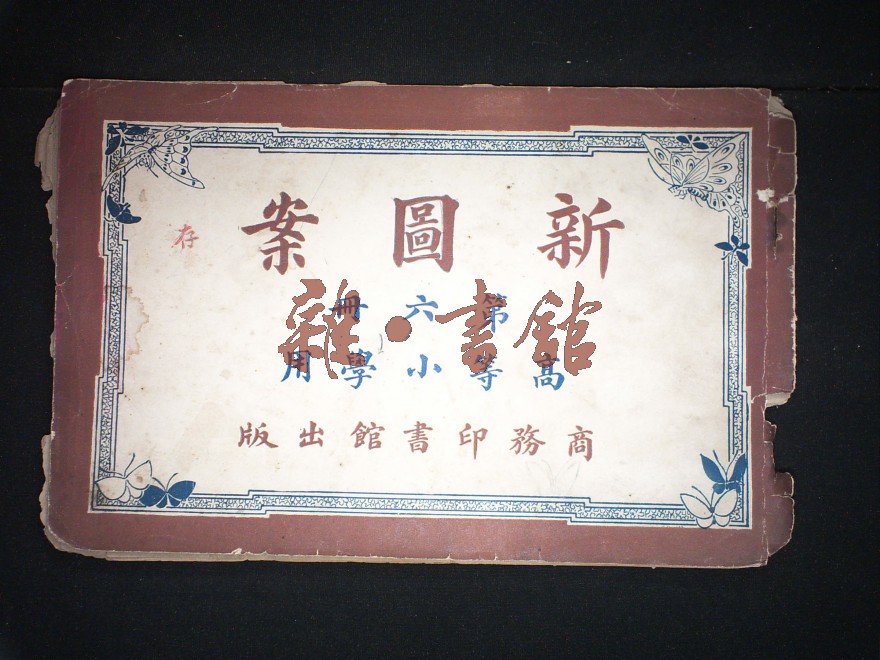 新圖案
存
第六冊
雜·書館
高等小學用
商務印書館出版